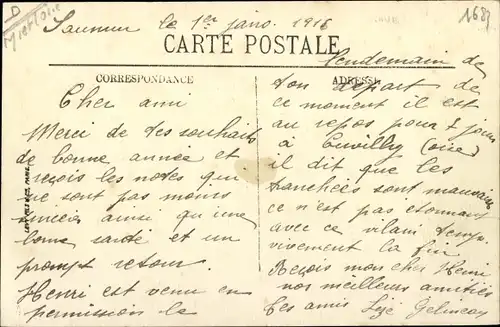 D
M et Loire
Saumur le 1er janv. 1916
CARTE POSTALE
CORRESPONDANCE
ADRESSE
Cher ami
Merci de tes souhaits
de bonne année et
reçois les notres qui
ne sont pas moins
sincères ainsi qu'une
bonne santé et un
prompt retour.
Henri est venu en
permission le
lendemain de
ton départ de
ce moment il est
au repos pour 8 jours
à Cuvilly (Oise)
il dit que les
tranchées sont mauvaises
ce n'est pas etonnant
avec ce vilain temps
vivement la fin
Reçois mon cher Henri
nos meilleurs amitiés
tes amis